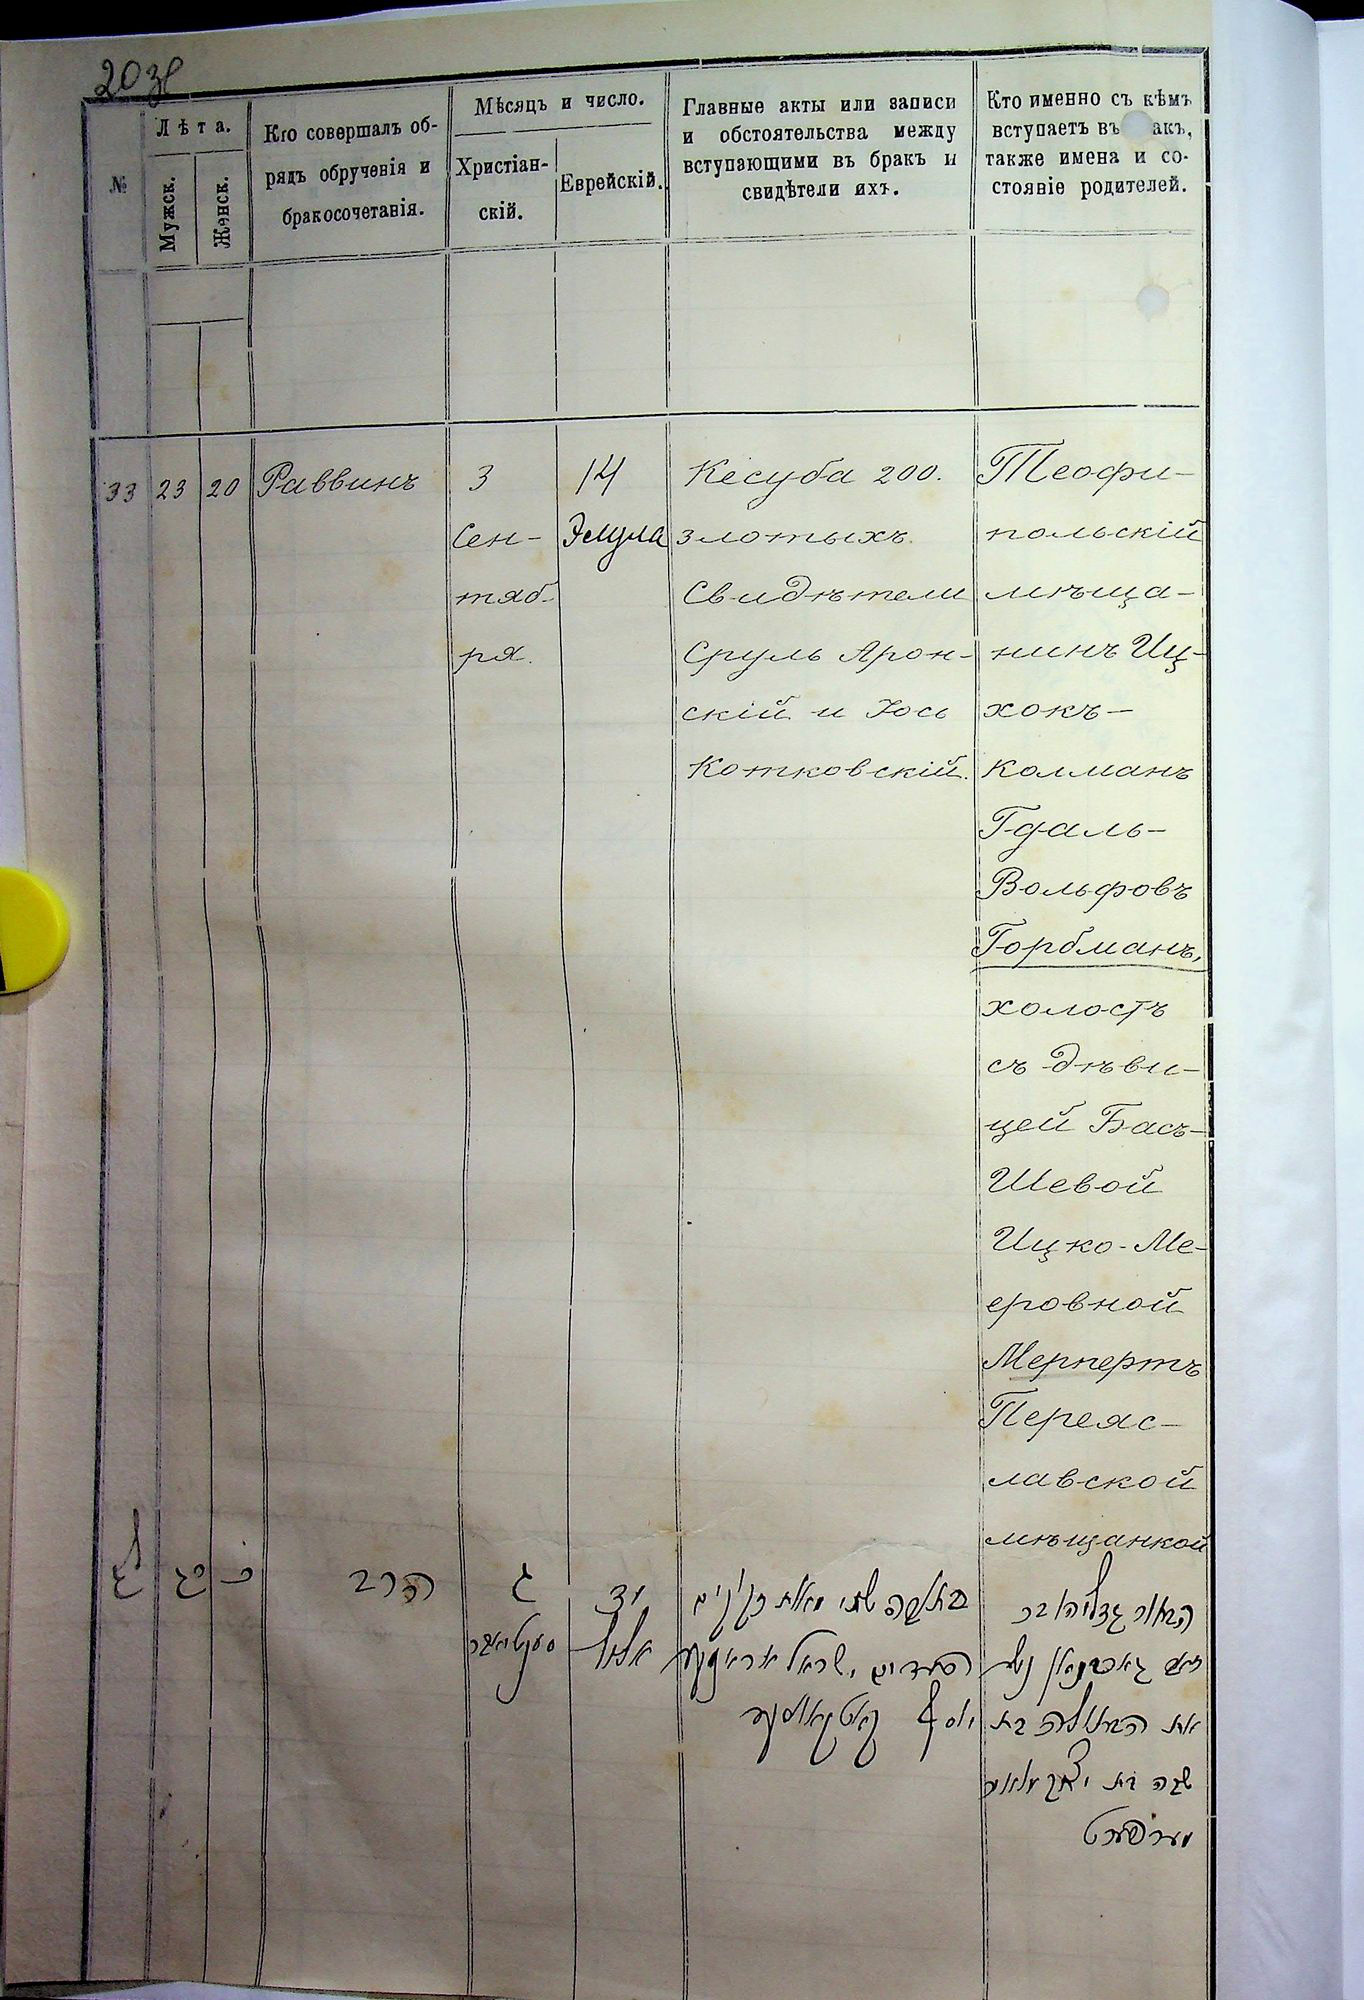 203
№
Лѣта.
Мужск.
Женск.
Кто совершалъ об-
рядъ обрученія и
бракосочетанія.
Мѣсяцъ и число.
Христіан-
скій.
Еврейскій.
Главные акты или записи
и обстоятельства между
вступающими въ бракъ и
свидѣтели ихъ.
Кто именно съ кѣмъ
вступаетъ въ акъ,
также имена и со-
стояніе родителей.
33
23
20
Раввинъ
3
Сен-
тяб-
ря.
14
Элула
Кесуба 200.
злотыхъ.
Свидѣтели
Сруль Арон-
скій и Іось
Котковскій.
Теофи-
польскій
мѣща-
нинъ Иц-
хокъ-
Колманъ
Гдаль-
Вольфовъ
Горбманъ,
холостъ
съ дѣви-
цей Бась-
Шевой
Ицко-Ме-
еровной
Мерпертъ
Переяс-
лавской
мѣщанкой
לג
כג
כ
הרב
ג
סענטיאבר
יד
אלול
מאתים
העדים ישראל
יוסף
הבחור
את הבתולה בת
שבה בת יצחק מאיר
מערפערט